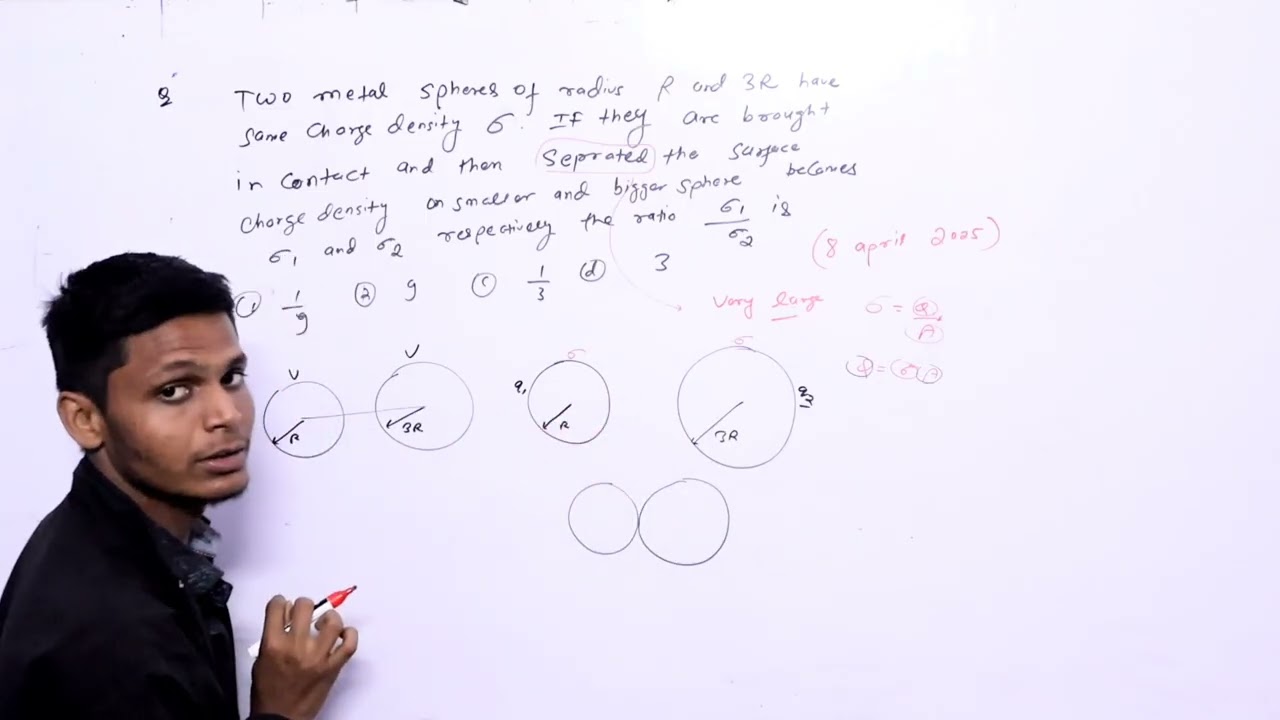 Q Two metal spheres of radius R and 3R have
same charge density σ. If they are brought
in contact and then Seprated the surface
charge density on smaller and bigger sphere becomes
σ1 and σ2 respectively the ratio σ1/σ2 is
(8 april 2025)
① 1/9 ② 9 ⓒ 1/3 ⓓ 3
Very large σ = Q/A
Q = σA
V V σ σ
q1 q2
R 3R R 3R